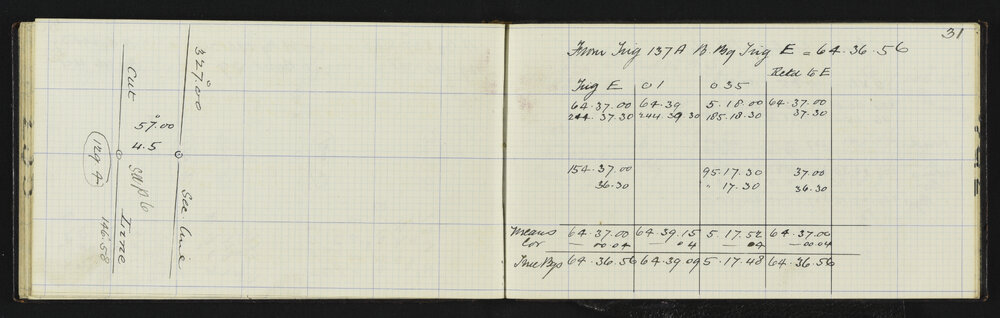 327°.00
Sec. Line
Cut
57°.00
4.5
129 4
Line
146.58
31
From Trig 137A B Bg Trig E = 64.36.56
Retd to E
Trig E 01 035
64.37.00 64.39 5.18.00 64.37.00
244.37.30 244 39 30 185.18.30 37.30
154.37.00 95.17.30 37.00
36.30 " 17.30 36.30
Means 64.37.00 64.39.15 5.17.52 64.37.00
Cor — 00.04 — 04 — 04 — 00.04
True Bgs 64.36.56 64.39 09 5.17.48 64.36.56